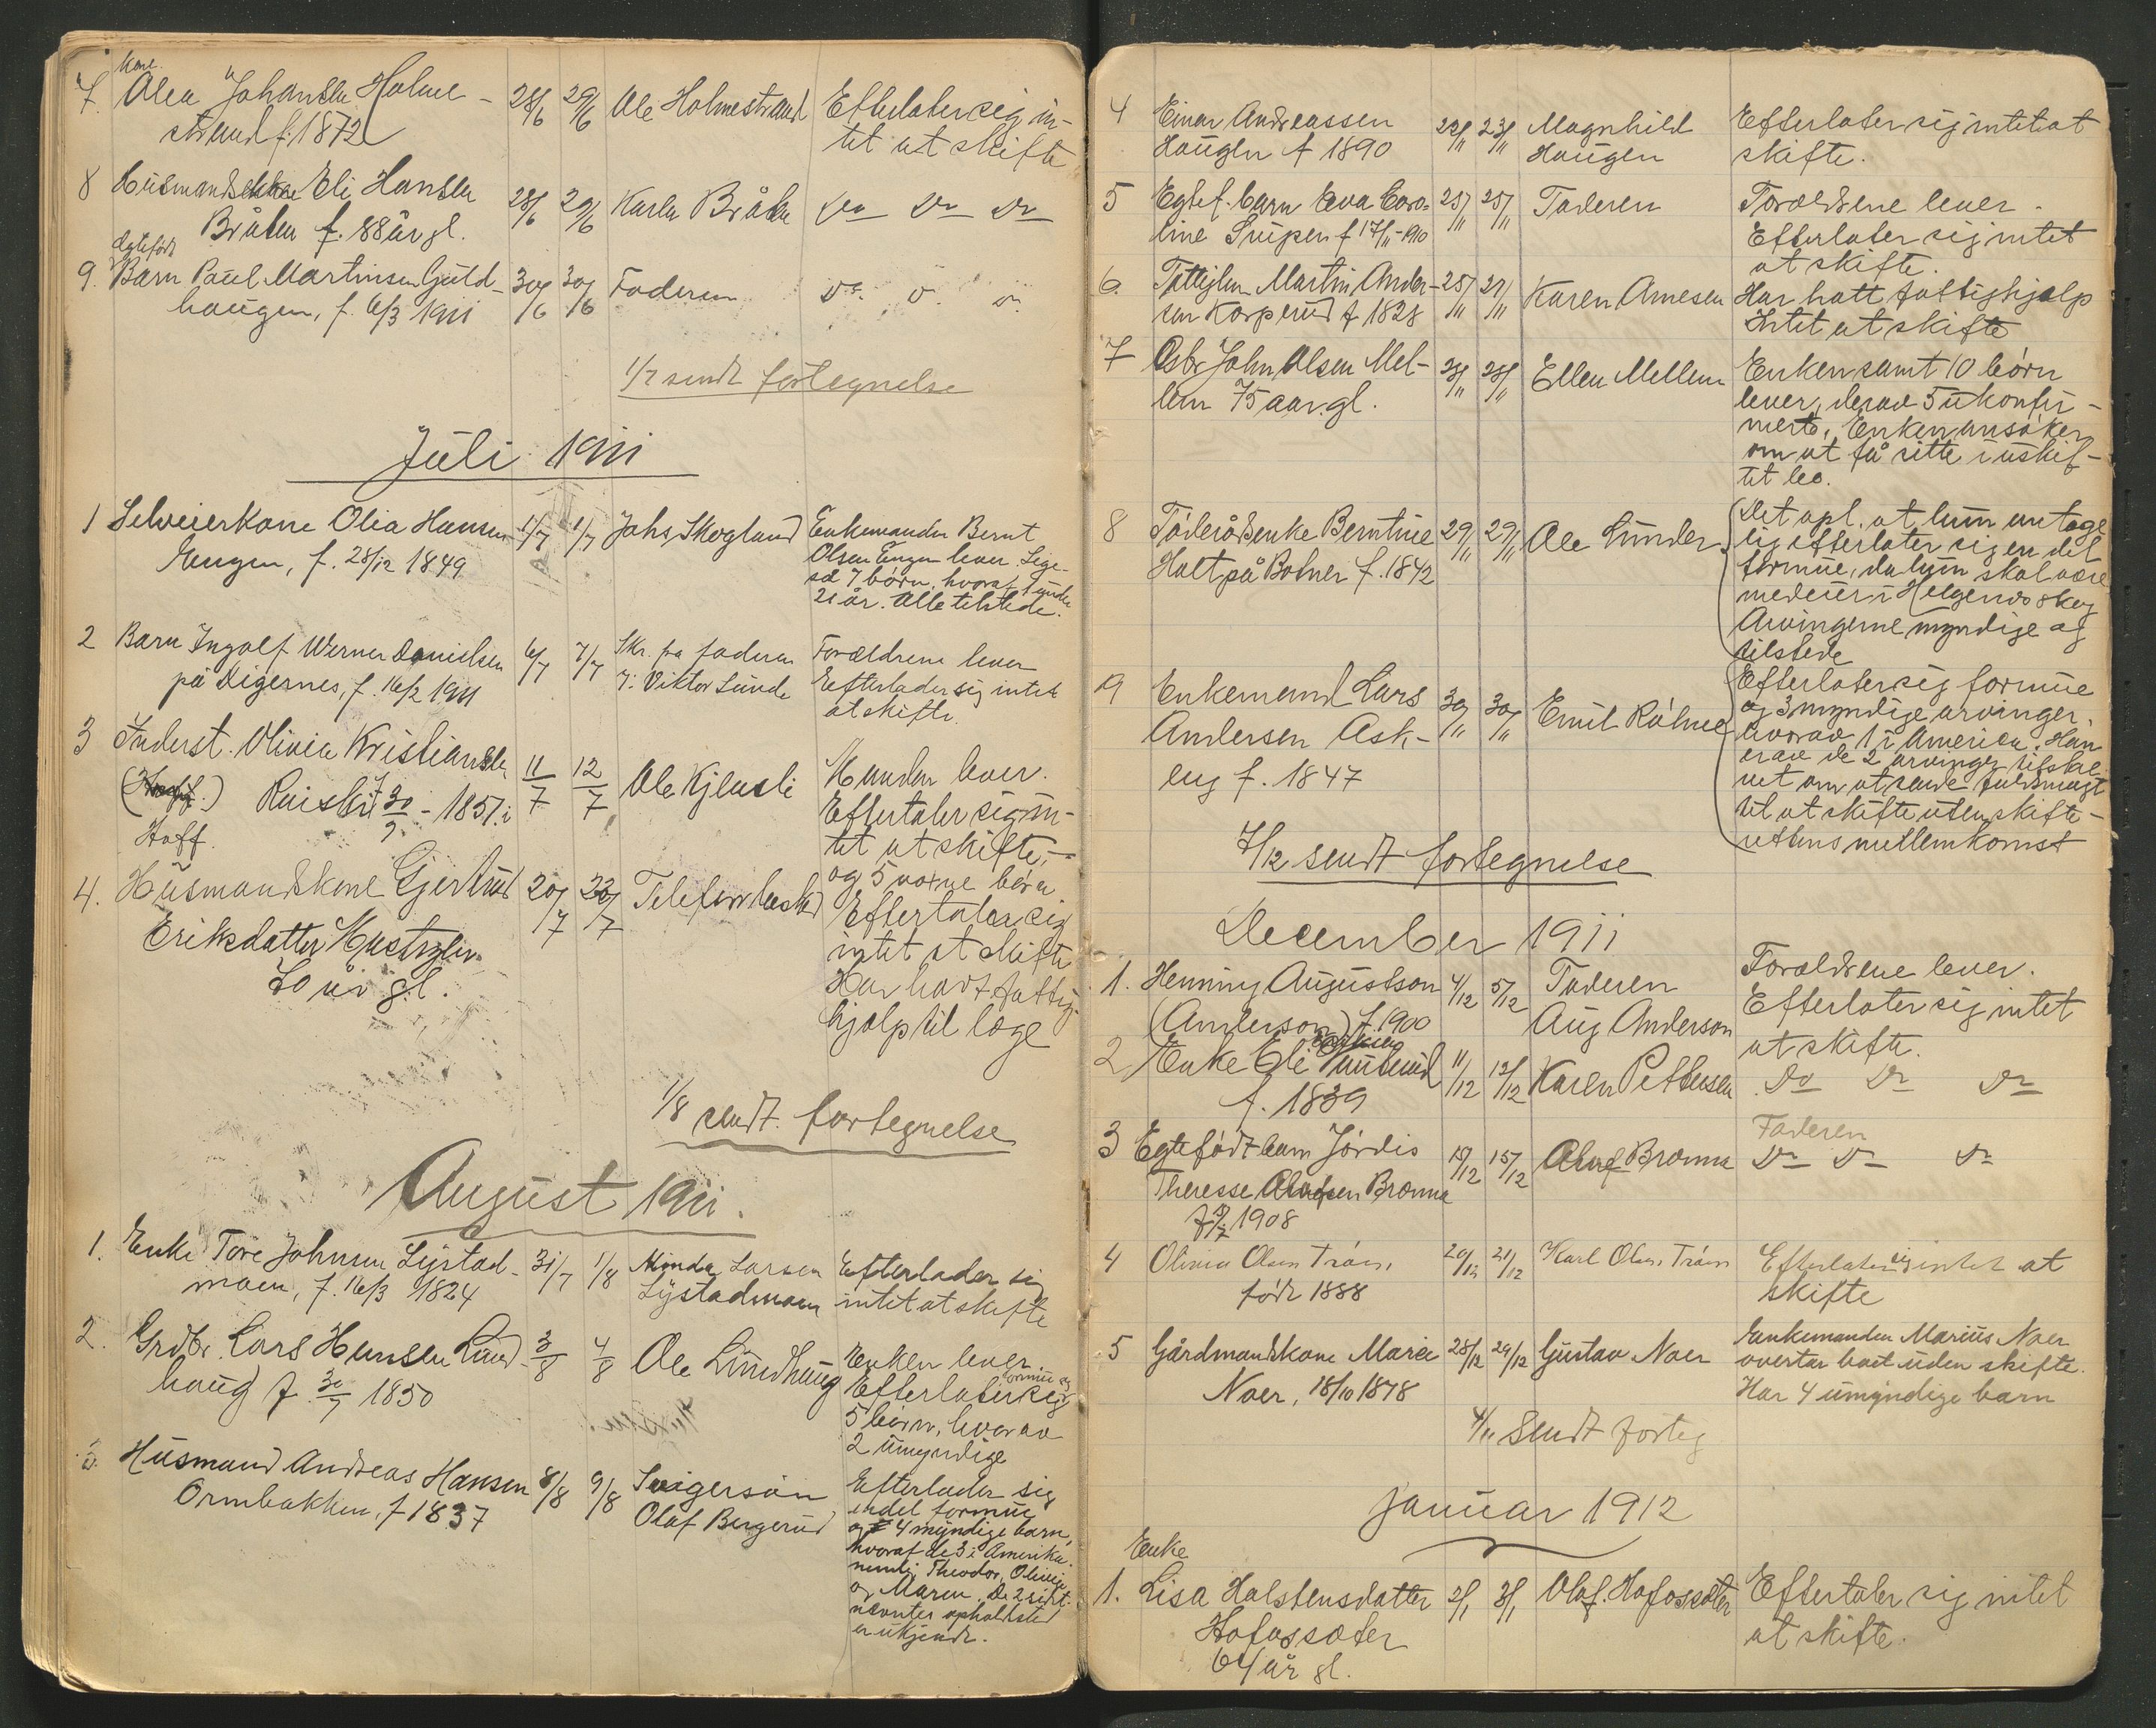 Kone
7. Olea Johansen Holme- 28/6 29/6 Ole Holmestrand Efterlater sig in-
strand f. 1872 tet at skifte
8 Husmandsenke Eli Hansen 28/6 29/6 Karln Bråten do do do
Bråten f. 88 år gl.
Egtefødt
9. Barn Paul Martinsen Guld- 30/6 30/6 Faderen do. do. do.
haugen, f. 6/3 1911
1/7 sendt fortegnelse
Juli 1911
1 Selveierkone Olia Hansen 1/7 1/7 Johs, Skogland Enkemanden Bernt
Engen, f. 28/12 1849 Olsen Engen lever. Lige-
så 7 børn, hvoraf 1 under
21 år. Alle tilstede.
2 Barn Ingolf Werner Danielsen 6/7 7/7 Skr. fra faderen Forældrene lever
på Digernes, f. 16/2 1911 v: Viktor Sunde Efterlader sig intet
at skifte.
3 Inderst. Olivia Kristiansen 11/7 12/7 Ole Kjensli Manden lever.
Raisli f 30/9 - 1851. i Efterlater sig in-
Hoff. tet at skifte,-
og 5 voxne børn
4. Husmandskone Gjertrud 20/7 22/7 Telefonbesked Efterlater sig
Eriksdatter intet at skifte
år gl. Har havt fattig-
hjælp til læge
1/8 sendt. fortegnelse
August 1911.
1. Enke Tore Johnsen Lystad- 31/7 1/8 Minda Larsen Efterlader sig
moen, f. 16/3 1824 Lystadmoen intet at skifte
2. Grdbr. Lars Hansen Lund- 3/8 4/8 Ole Lundhaug Enken lever.
haug f. 30/7 1850 Efterlater sig formue og
5 børn, hvorav
2 umyndige
3. Husmand Andreas Hansen 8/8 9/8 Svigersøn Efterlader sig
Ormbakken, f 1837 Olaf Bergerud endel formue
og 4 myndige barn,
hvoraf de 3 i Amerika.
nemlig Theodor, Olivia
og Maren. De 2 sidst-
nevntes opholdsted
er ukjendt.
4 Einar Andreassen 22/11 23/11 Magnhild Efterlater sig intet at
Haugen f 1890 Haugen skifte.
5 Egtef. barn Eva Caro- 25/11 25/11 Faderen Forældrene lever.
line f 17/11-1910 Efterlater sig intet
at skifte.
6. Fattiglem Martin Ander- 25/11 27/11 Karen Arnesen Har hatt fattighjælp
sen Korperud f 1828 Intet at skifte
7 Gsbr John Olsen Mel- 28/11 28/11 Ellen Mellem Enken samt 10 børn
lem 75 aar. gl. lever, derav 5 ukonfir-
merte. Enken ansøker
om at få sitte i uskif-
tet bo.
8 Føderådsenke Berntine 29/11 29/11 Ole Sunder. Det opl. at hun antage-
Holt på Botner f. 1842 lig efterlater sig en del
formue, da hun skal være
medeier i Helgenes skog
Arvingerne myndige og
tilstede
9 Enkemand Lars 30/11 30/11 Emil Råhne Efterlater sig formue
Andersen Ask- og 3 myndige arvinger.
eng f. 1847 hvorav 1 i America. Han
er av de 2 arvinger tilskre-
vet om at sende fuldmagt
til at skifte uten skifte-
rettens mellemkomst
7/12 sendt fortegnelse
December 1911
1. Henning Augustson 4/12 5/12 Faderen Forældrene lever.
(Anderson) f. 1900 Aug Anderson Efterlater sig intet
at skifte.
2 Enke Eli 11/12 12/12 Karen Pettersen do do do
f. 1839
3 Egtefødt barn Jørdis 15/12 15/12 Olaf Brønna Faderen
Therese Olafsen Brønna do do do
f 1908
4 Olivia Olsen Tråen, 20/12 21/12 Karl Olsen Tråen Efterlater sig intet at
født 1888 skifte
5 Gårdmandskone Marie 28/12 29/12 Gustav Noer Enkemanden Marius Noer
Noer, 18/10 1878 overtar boet uden skifte.
Har 4 umyndige barn
4/11 Sendt forteg
Januar 1912
Enke
1. Lisa Halstensdatter 2/1 3/1 Olaf. Hofossæter Efterlater sig intet
Hofossæter at skifte.
64 år gl.